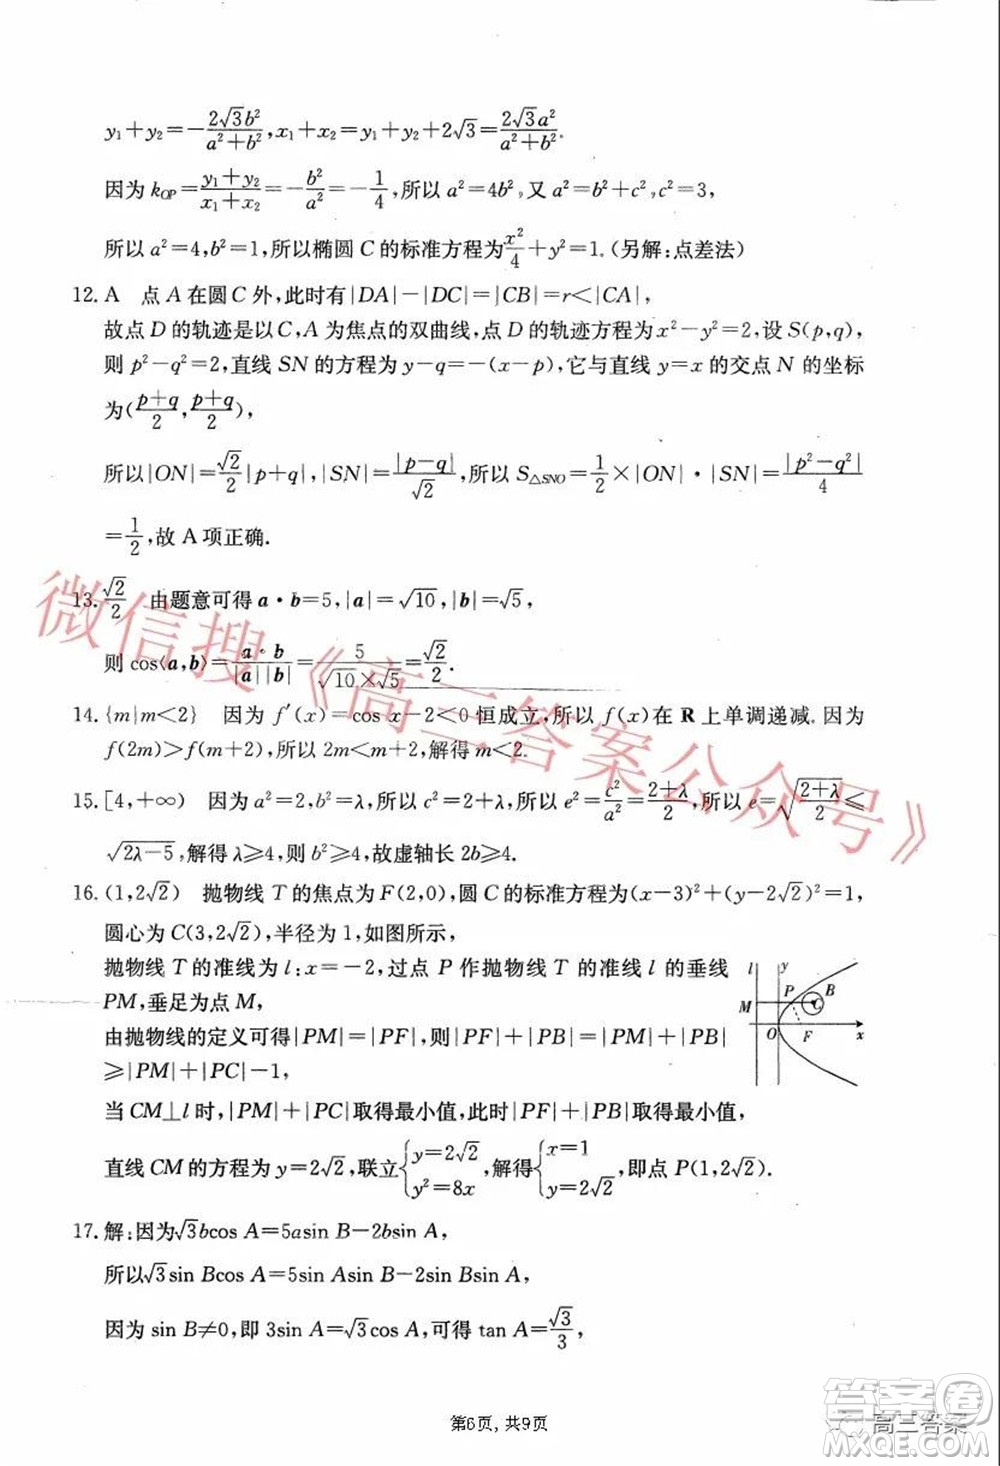 y₁+y₂=-2√3b²/(a²+b²),x₁+x₂=y₁+y₂+2√3=2√3a²/(a²+b²)。
因为 k_OP=(y₁+y₂)/(x₁+x₂)=-b²/a²=-1/4,所以 a²=4b²,又 a²=b²+c²,c²=3,
所以 a²=4,b²=1,所以椭圆 C 的标准方程为x²/4+y²=1。(另解:点差法)
12. A 点 A 在圆 C 外,此时有|DA|-|DC|=|CB|=r<|CA|,
故点 D 的轨迹是以 C,A 为焦点的双曲线,点 D 的轨迹方程为 x²-y²=2,设 S(p,q),
则 p²-q²=2,直线 SN 的方程为 y-q=-(x-p),它与直线 y=x 的交点 N 的坐标
为((p+q)/2,(p+q)/2),
所以|ON|=√2/2|p+q|,|SN|=|p-q|/√2,所以 S△SNO=1/2×|ON|·|SN|=|p²-q²|/4
=1/2,故 A 项正确.
13. √2/2 由题意可得 a·b=5,|a|=√10,|b|=√5,
则 cos⟨a,b⟩=a·b/(|a||b|)=5/(√10×√5)=√2/2.
14. {m|m<2} 因为 f′(x)=cos x-2<0 恒成立,所以 f(x)在 R 上单调递减.因为
f(2m)>f(m+2),所以 2m<m+2,解得 m<2.
15. [4,+∞) 因为 a²=2,b²=λ,所以 c²=2+λ,所以 e²=c²/a²=(2+λ)/2,所以 e=√((2+λ)/2)≤
√(2λ-5),解得 λ≥4,则 b²≥4,故虚轴长 2b≥4.
16. (1,2√2) 抛物线 T 的焦点为 F(2,0),圆 C 的标准方程为(x-3)²+(y-2√2)²=1,
圆心为 C(3,2√2),半径为 1,如图所示,
抛物线 T 的准线为 l:x=-2,过点 P 作抛物线 T 的准线 l 的垂线
PM,垂足为点 M,
由抛物线的定义可得|PM|=|PF|,则|PF|+|PB|=|PM|+|PB|
≥|PM|+|PC|-1,
l y
P B
M C
O F x
当 CM⊥l 时,|PM|+|PC|取得最小值,此时|PF|+|PB|取得最小值,
直线 CM 的方程为 y=2√2,联立{y=2√2 y²=8x,解得{x=1 y=2√2,即点 P(1,2√2).
17. 解:因为√3bcos A=5asin B-2bsin A,
所以√3sin Bcos A=5sin Asin B-2sin Bsin A,
因为 sin B≠0,即 3sin A=√3cos A,可得 tan A=√3/3,
第6页,共9页
微信搜《高三答案公众号》
答案卷
高三答案
MXQE.COM